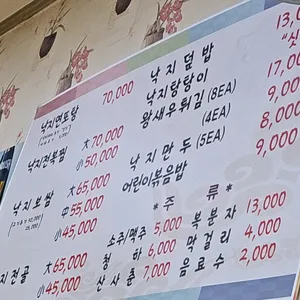 낙지연포탕 70,000
낙지전복찜 大70,000
小50,000
낙지보쌈 大65,000
中55,000
小45,000
지전골 大65,000
小45,000
낙지덮밥 13,0
낙지탕탕이 "싯
왕새우튀김(8EA) 17,00
(4EA) 9,00
낙지만두(5EA) 8,000
어린이볶음밥 9,000
*주류*
소주/맥주 5,000 복분자 13,000
청하 6,000 막걸리 4,000
산사춘 7,000 음료수 2,000